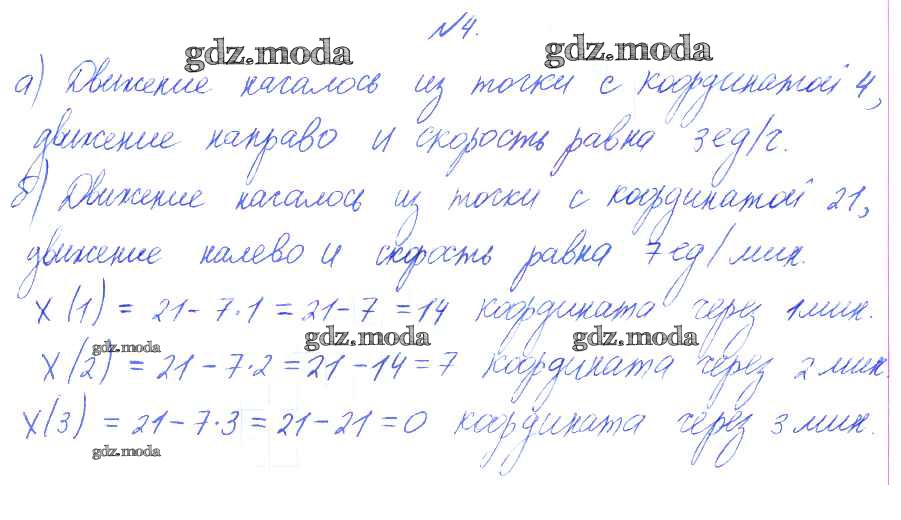 №4.
gdz.moda gdz.moda
а) Движение началось из точки с координатой 4,
движение направо и скорость равна 3ед/ч.
б) Движение началось из точки с координатой 21,
движение налево и скорость равна 7ед/мин.
x(1) = 21-7·1 = 21-7 = 14 координата через 1мин.
gdz.moda gdz.moda gdz.moda
x(2) = 21-7·2 = 21-14 = 7 координата через 2мин.
x(3) = 21-7·3 = 21-21 = 0 координата через 3мин.
gdz.moda